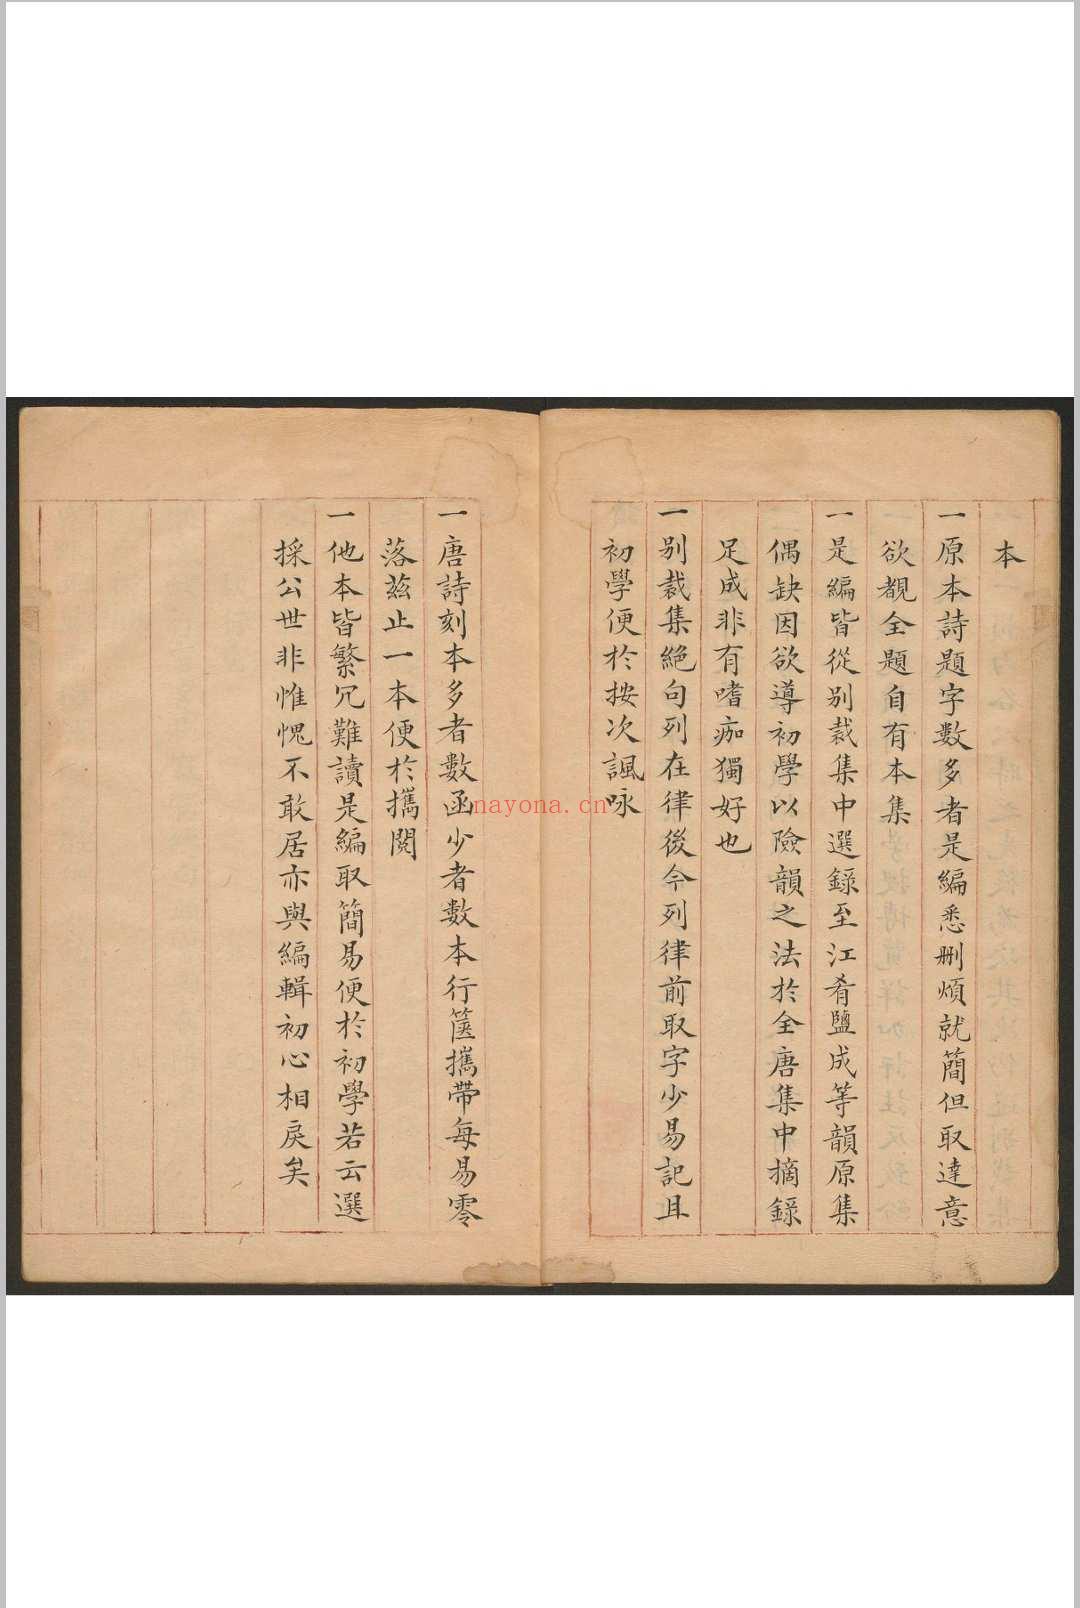 本
一原本詩題字數多者是編悉刪煩就簡但取達意
欲覩全題自有本集
一是編皆從别裁集中選錄至江肴鹽成等韻原集
偶缺因欲導初學以險韻之法於全唐集中摘錄
足成非有嗜痂獨好也
一别裁集絶句列在律後今列律前取字少易記且
初學便於按次諷咏
一唐詩刻本多者數函少者數本行篋攜帶每易零
落茲止一本便於攜閱
一他本皆繁冗難讀是編取簡易便於初學若云選
採公世非惟愧不敢居亦與編輯初心相戾矣
nayona.cn